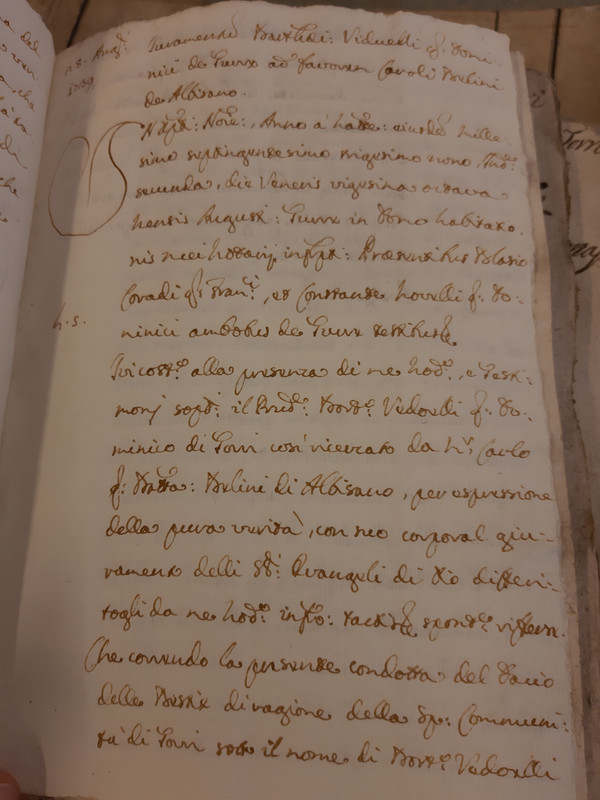 28. Aug.ti
1739
Juramentū Barthol: Vidoelli q. Domi-
nici de Turre ad favorem Caroli Belini
de Albisano.
h. s.
Nativit: Nore:, Anno à Natte: eiusdē mille-
simo septingentesimo trigesimo nono, Indne
secunda, die Veneris vigesima octava
mensis Augusti: Turre in Domo habitatio-
nis mei Nottarij infrpti: Presentibus Blasio
Coradi q: Franci, et Constante Novelli q: Do-
minici ambobus de Turre testibus
Ivi costto alla presenza di me Nodo, e Testi-
monj sopti: il Prudte Bortto Vedoelli q: Do-
minico di Torri così ricercato da Mr Carlo
q: Batta: Belini di Albisano, per espressione
della pura verità, con suo corporal giu-
ramento delli Sti: Evangeli di Dio differi-
togli da me Nodo infto: tactis spontte riferse.
Che correndo la presente condotta del Dacio
delle Bestie di ragione della Sp: Communi-
tà di Torri sotto il nome di Bortto Vedoelli